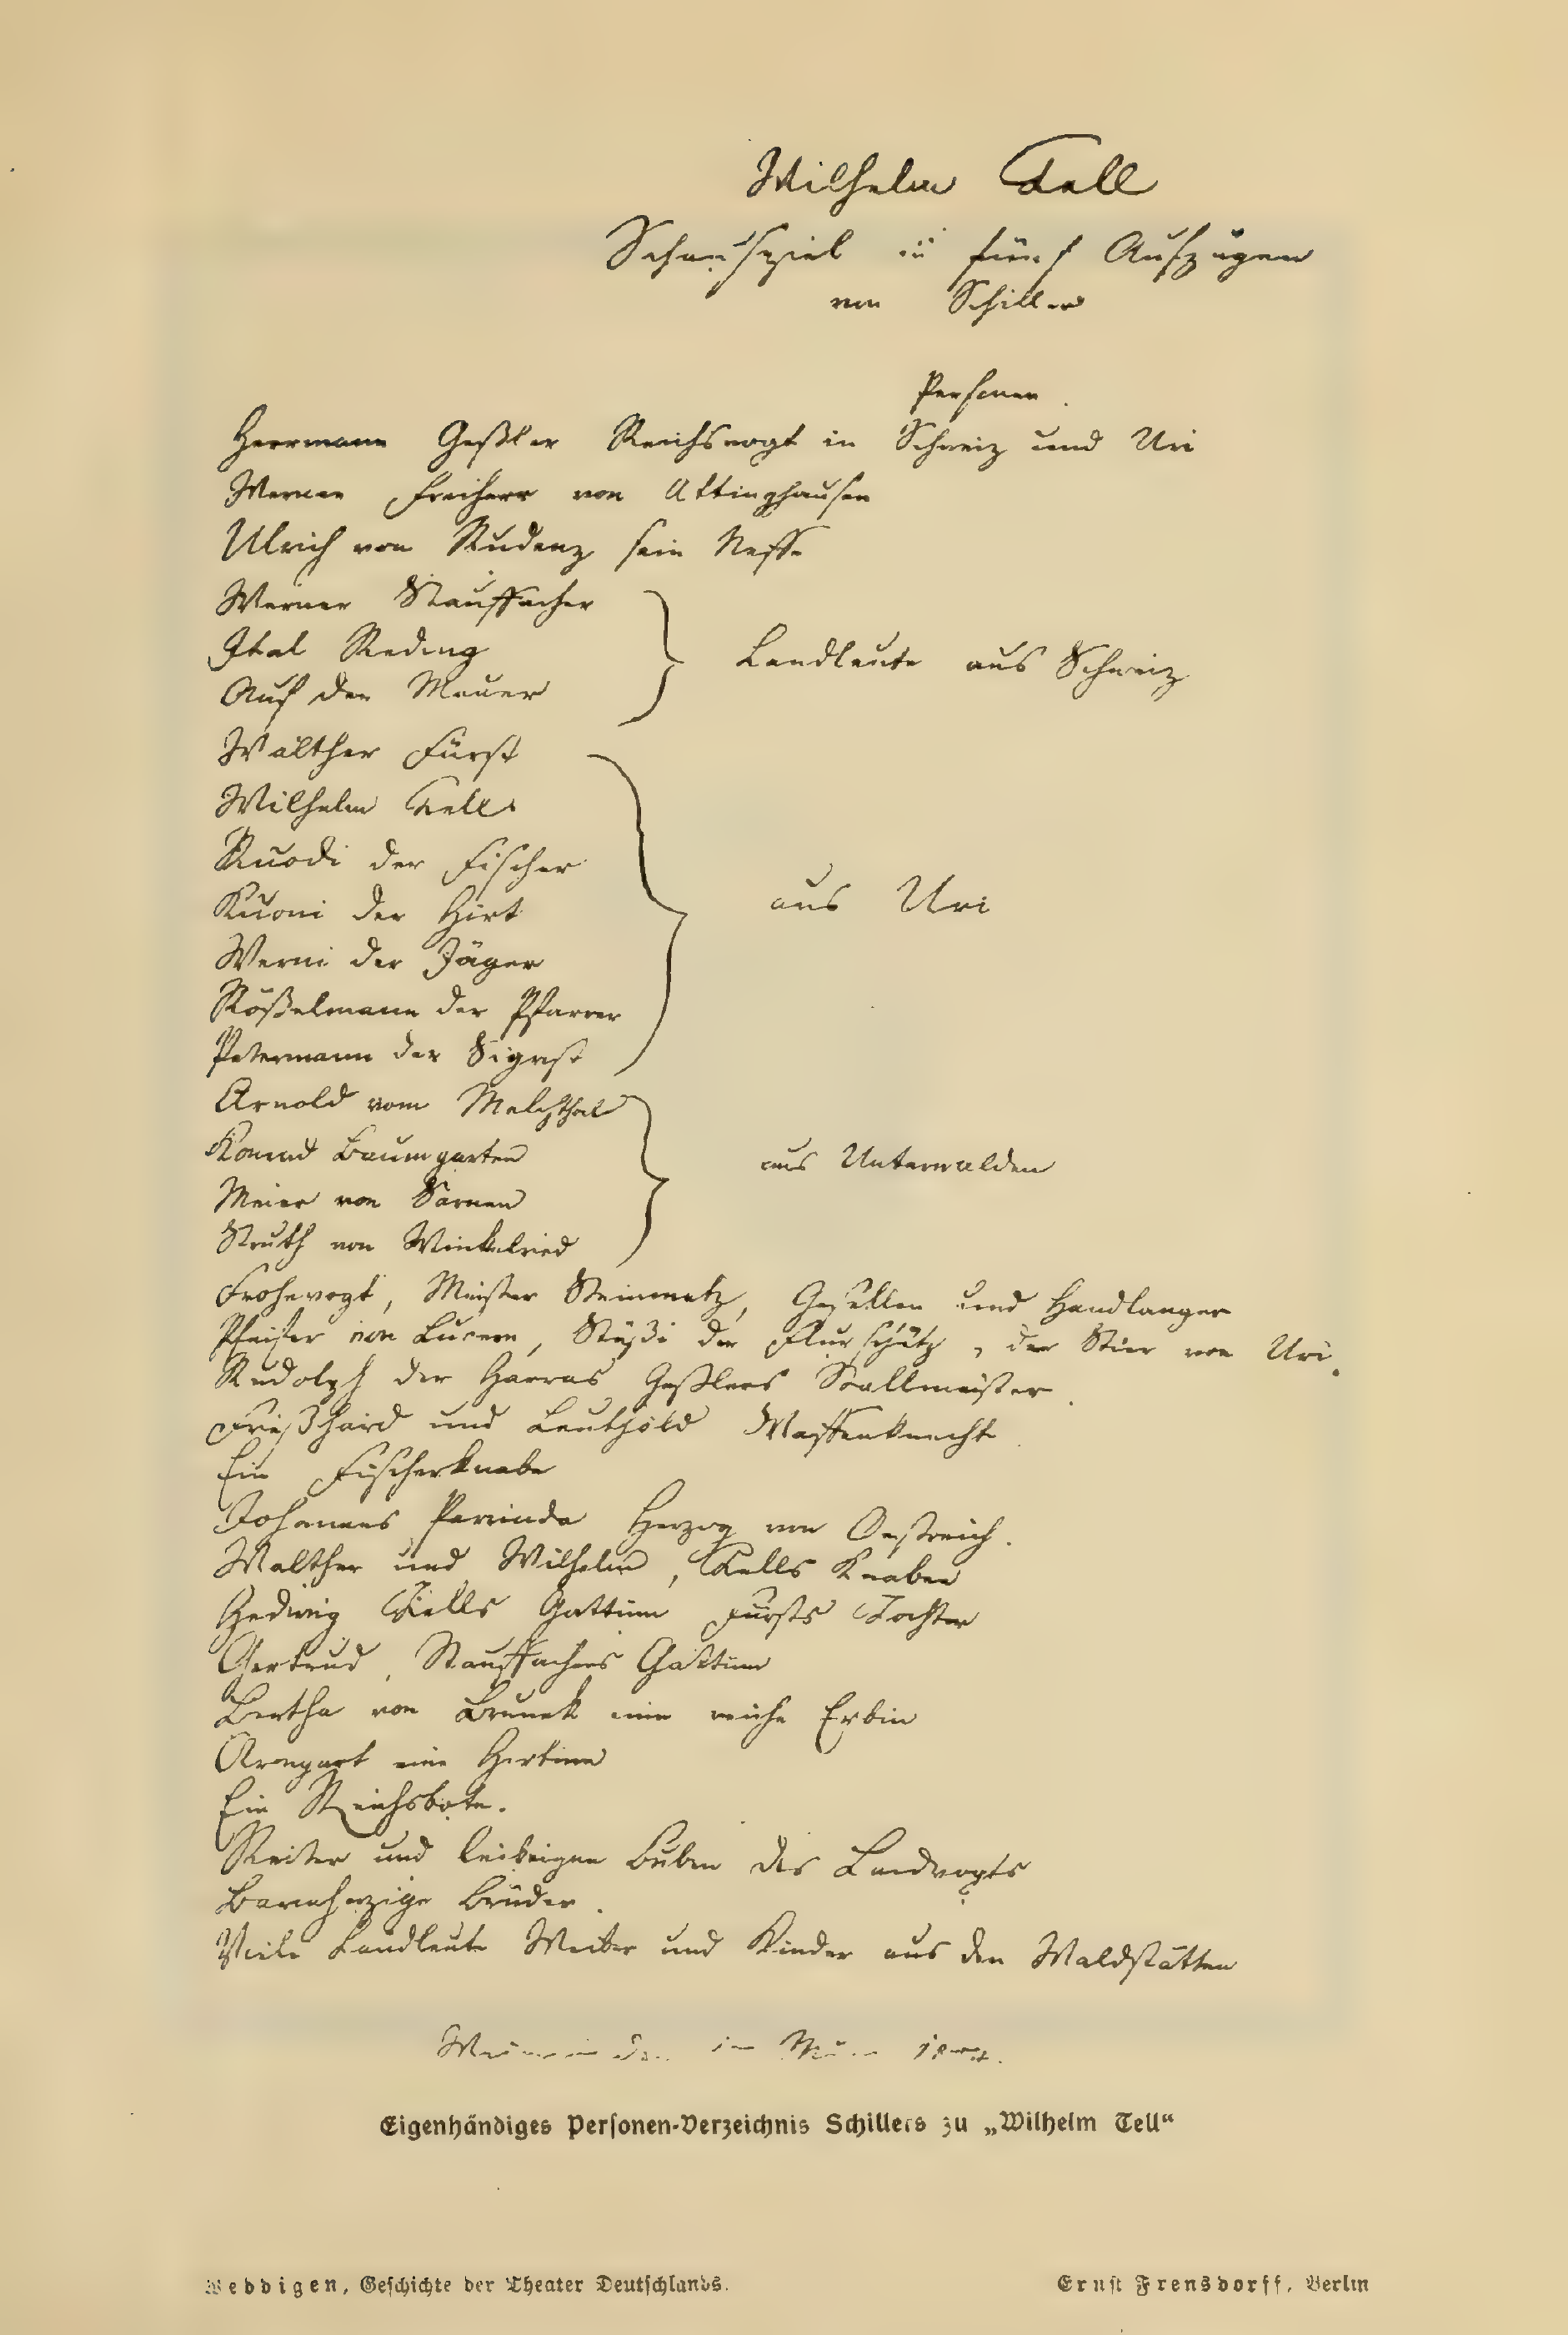 Wilhelm Tell
Schauspiel in fünf Aufzügen
von Schiller
Personen.
Herrmann Geßler Reichsvogt in Schweiz und Uri
Werner Freiherr von Attinghausen
Ulrich von Rudenz sein Neffe
Werner Stauffacher
Ital Reding
Auf der Mauer
Landleute aus Schweiz
Walther Fürst
Wilhelm Tell
Ruodi der Fischer
Kuoni der Hirt
Werni der Jäger
Rößelmann der Pfarrer
Petermann der Sigrist
aus Uri
Arnold vom Melchthal
Konrad Baumgarten
Meier von Sarnen
Struth von Winkelried
aus Unterwalden
Frohnvogt, Meister Steinmetz, Gesellen und Handlanger
Pfeifer von Lucern, Stüßi der Flurschütz, der Stier von Uri.
Rudolph der Harras Geßlers Stallmeister.
Frießhard und Leuthold Waffenknechte
Ein Fischerknabe
Johannes Parricida Herzog von Oestreich.
Walther und Wilhelm, Tells Knaben
Hedwig Tells Gattinn Fürsts Tochter
Gertrud, Stauffachers Gattinn
Bertha von Bruneck eine reiche Erbin
Armgart eine Hirtinn
Ein Reichsbote.
Reiter und leibeigene Buben des Landvogts
Barmherzige Brüder.
Viele Landleute Weiber und Kinder aus den Waldstätten
im
Eigenhändiges Personen-Verzeichnis Schillers zu „Wilhelm Tell“
Weddigen, Geschichte der Theater Deutschlands.
Ernst Frensdorff, Berlin